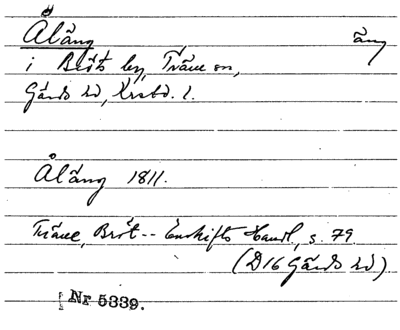 Åläng äng
i Bröt by, Träne sn,
Gärds hd, Krstd. l.
Åläng 1811.
Träne, Bröt -- Enskifts Handl, s. 79
(D16 Gärds hd)
Nr 5339.